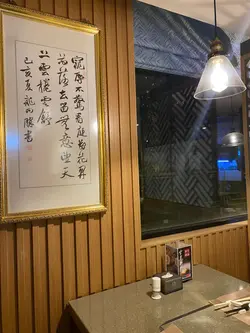 寵辱不驚看庭前花開
花落去留無意望天
上雲捲雲舒
己亥夏龍
書